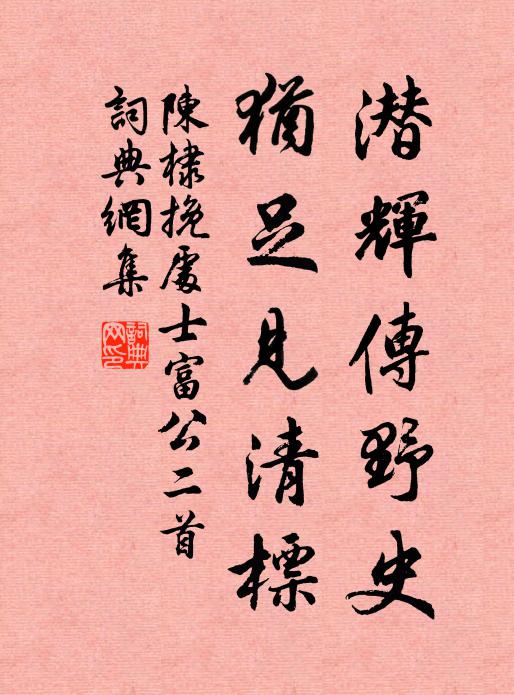 潜輝傳野史
猶足見清標
陳棣挽處士富公二首
詞典網集
詞典網印